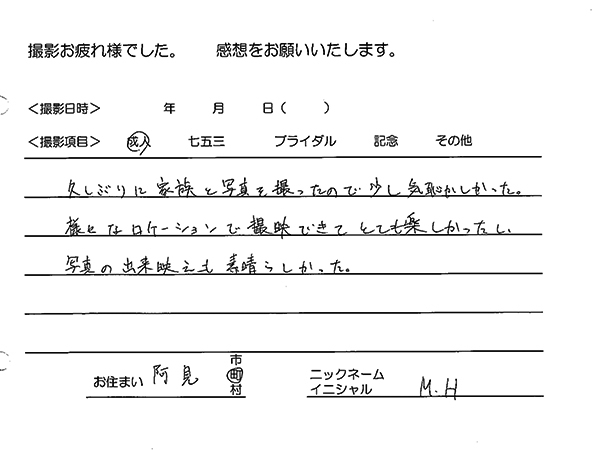 撮影お疲れ様でした。 感想をお願いいたします。
<撮影日時> 年 月 日( )
<撮影項目> 成人 七五三 ブライダル 記念 その他
久しぶりに家族と写真を撮ったので少し気恥かしかった。
様々なロケーションで撮映できてとても楽しかったし、
写真の出来映えも素晴らしかった。
お住まい 阿見 市町村
ニックネーム
イニシャル M.H